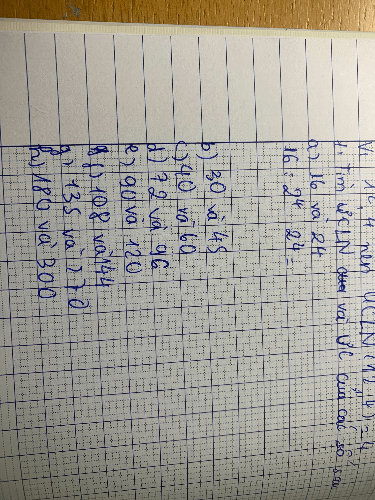 Vì 12 ⋮ 4 nên ƯCLN (12, 4) = 4
1. Tìm ƯCLN và ƯC của các số sau
a) 16 và 24
16 = 2⁴ 24 =
b) 30 và 45
c) 40 và 60
d) 72 và 96
e) 90 và 120
f) 108 và 144
g) 135 và 270
h) 180 và 300